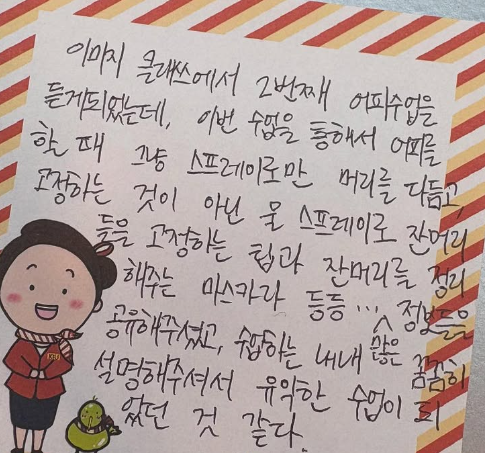 이미지 클래쓰에서 2번째 어피수업을
듣게되었는데, 이번 수업을 통해서 어피를
할 때 그냥 스프레이로만 머리를 다듬고,
고정하는 것이 아닌 물 스프레이로 잔머리
들을 고정하는 팁과 잔머리를 정리
해주는 마스카라 등등... 많은 정보들을
공유해주셨고, 수업하는 내내 꼼꼼히
설명해주셔서 유익한 수업이 되
었던 것 같다.